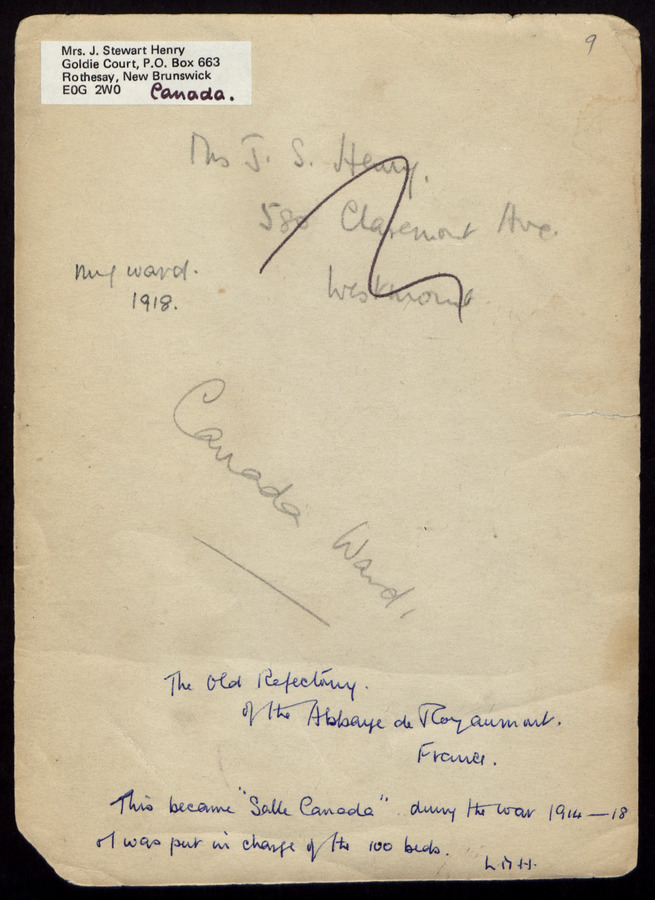 Mrs. J. Stewart Henry
Goldie Court, P.O. Box 663
Rothesay, New Brunswick
E0G 2W0 Canada.
9
Mrs J. S. Henry.
580 Claremont Ave.
Westmount
my ward.
1918.
Canada Ward.
The Old Refectory.
of the Abbaye de Royaumont.
France.
This became "Salle Canada" during the war 1914-18
I was put in charge of the 100 beds.